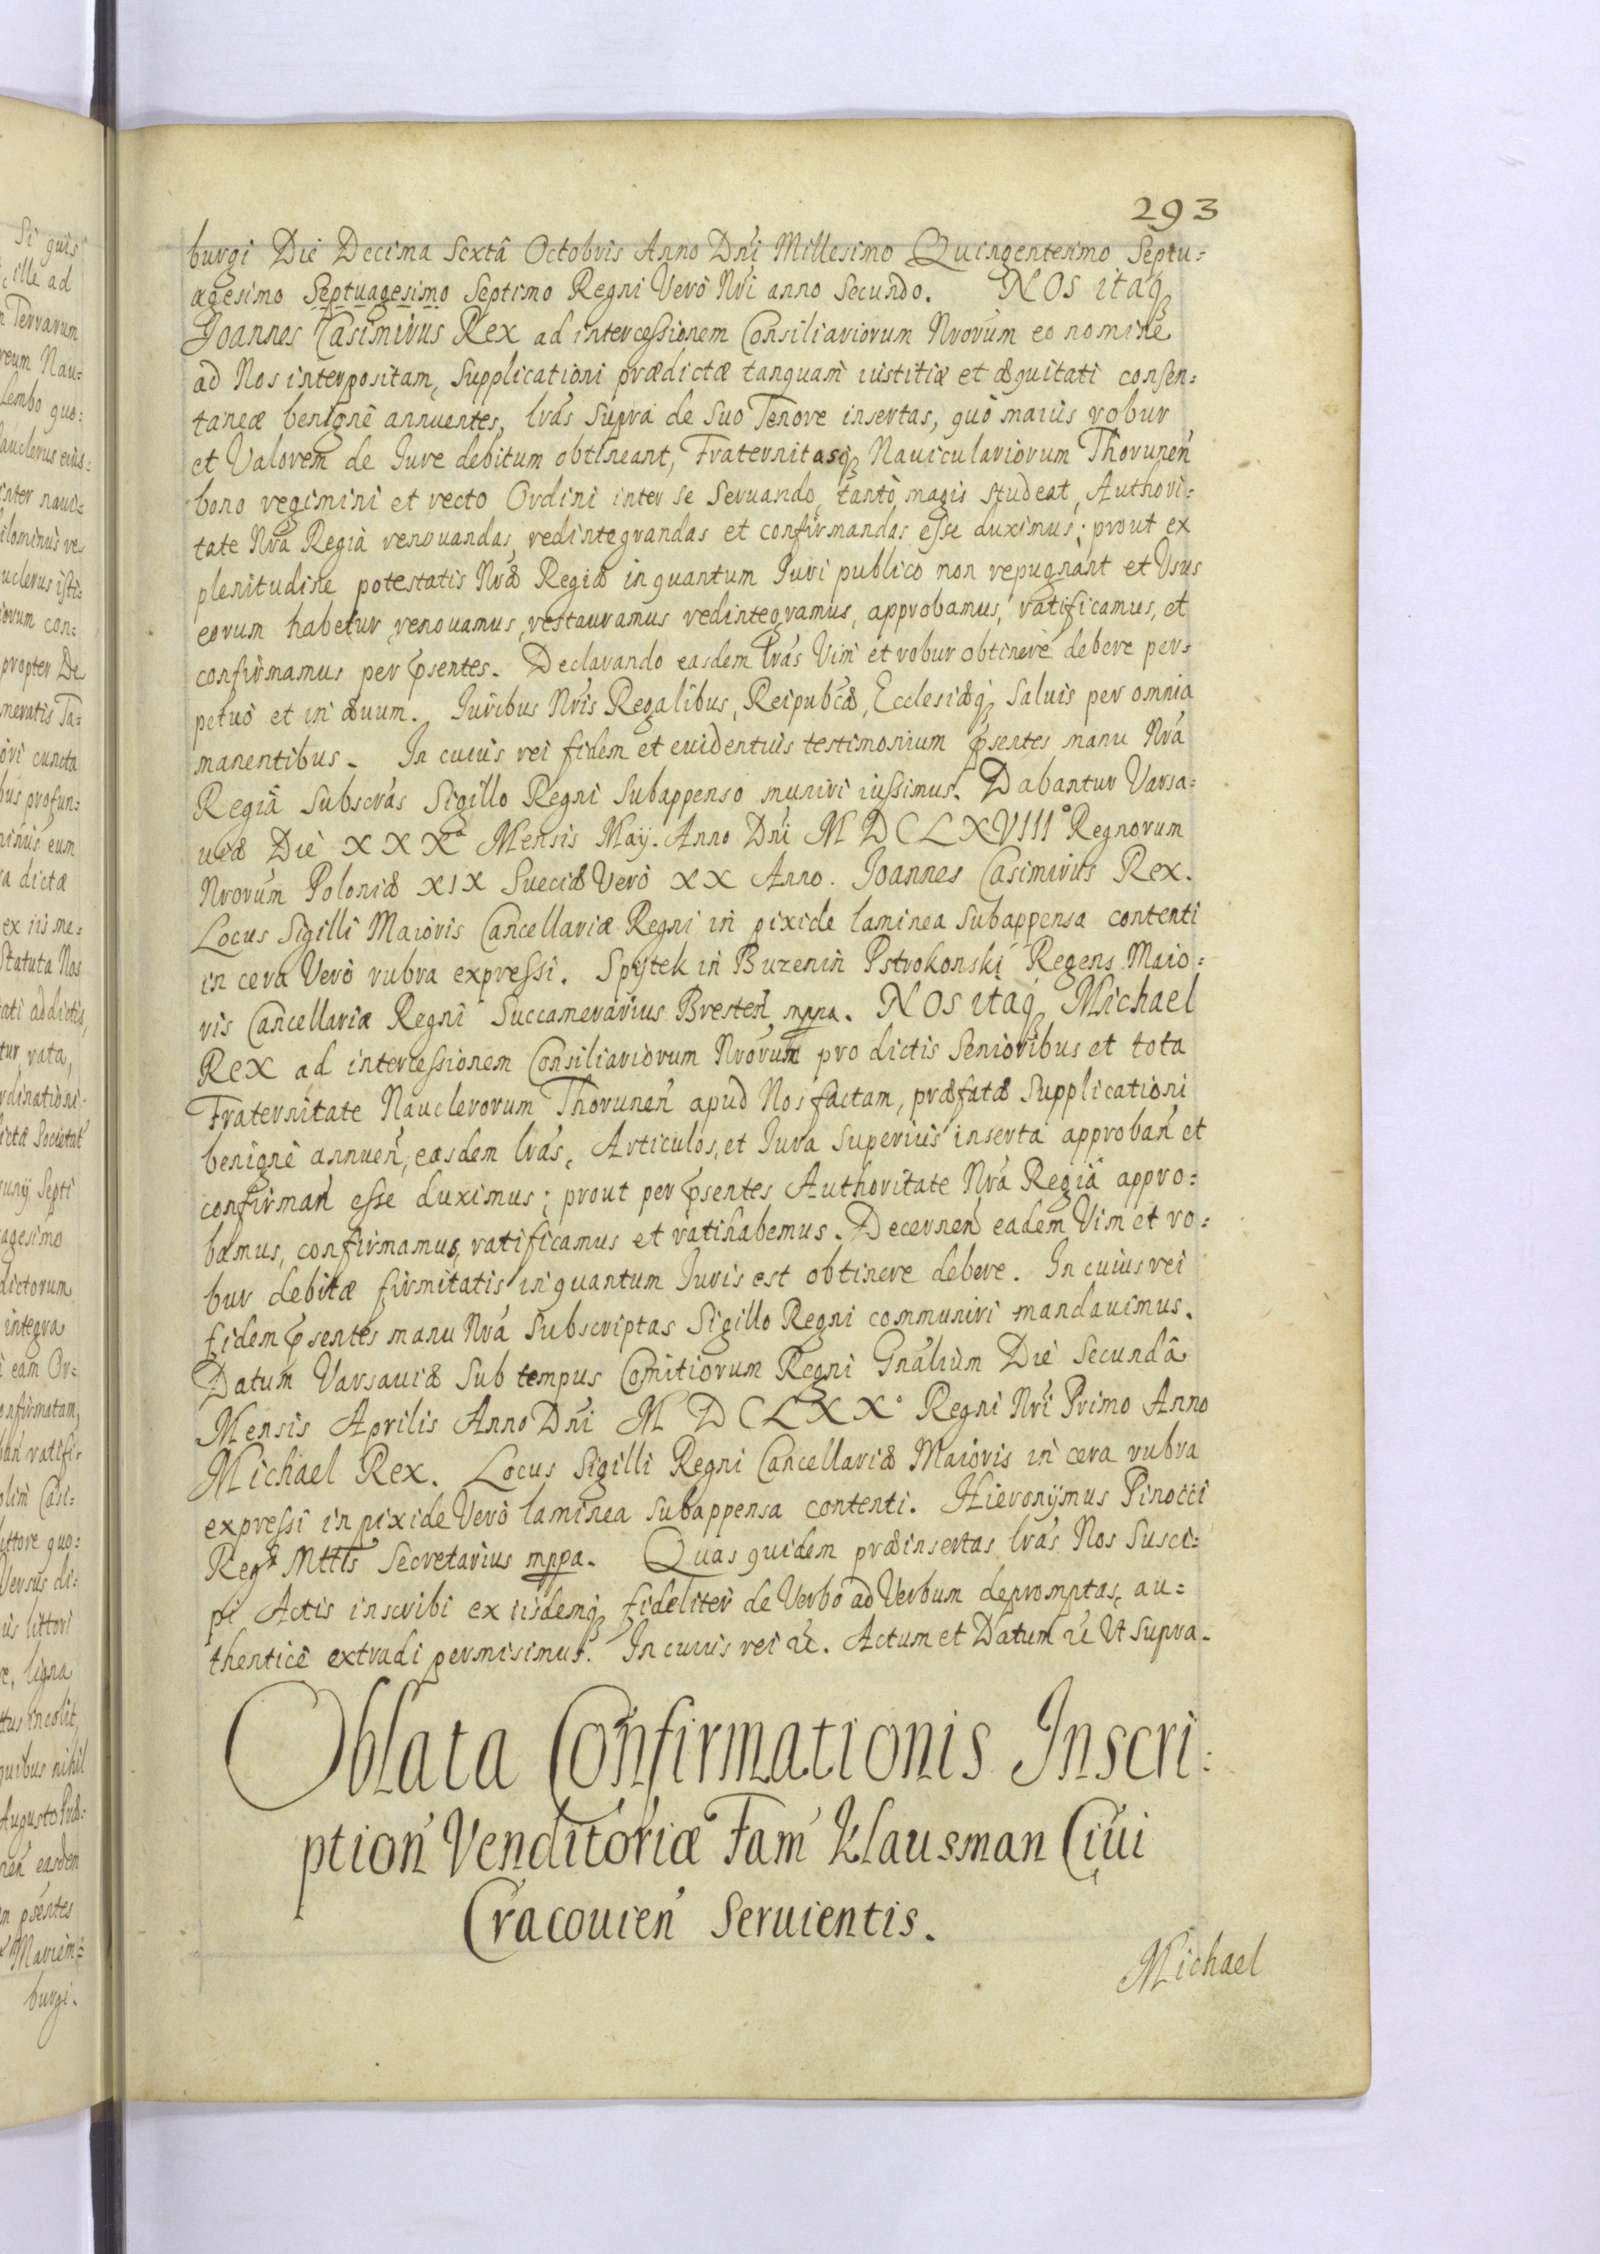 293
burgi Die Decima Sextâ Octobris Anno Dni Millesimo Quingentesimo Septu:
agesimo Septuagesimo Septimo Regni Verò Nri anno Secundo. NOS itaq
Joannes Casimirus Rex ad intercessionem Consiliariorum Nrorum eo nomine
ad Nos interpositam, Supplicationi prædictæ tanquam iustitiæ et æquitati consen:
taneæ benignè annuentes, lras Supra de Suo Tenore insertas, quò maiùs robur
et Valorem de Jure debitum obtineant, Fraternitasq Nauiculariorum Thorunen
bono regimini et recto Ordini inter se Seruando, tantò magis studeat, Authori:
tate Nra Regià renouandas, redintegrandas et confirmandas esse duximus; prout ex
plenitudine potestatis Nræ Regiæ inquantum Juri publico non repugnant et Usus
eorum habetur, renouamus, restauramus redintegramus, approbamus, ratificamus, et
confirmamus per psentes. Declarando easdem lras Vim et robur obtinere debere per:
petuò et in æuum. Juribus Nris Regalibus, Reipubcæ, Ecclesiæq Saluis per omnia
manentibus. In cuius rei fidem et euidentius testimonium psentes manu Nra
Regiâ Subscras Sigillo Regni Subappenso muniri iussimus. Dabantur Varsa:
uiæ Die XXXa Mensis May. Anno Dni MDCLXVIII° Regnorum
Nrorum Poloniæ XIX Sueciæ Verò XX Anno. Joannes Casimirus Rex.
Locus Sigilli Maioris Cancellariæ Regni in pixide laminea Subappensa contenti
in cera Verò rubra expressi. Spytek in Buzenin Pstrokonski Regens Maio:
ris Cancellariæ Regni Succamerarius Bresten mppa. NOS itaq Michael
Rex ad intercessionem Consiliariorum Nrorum pro dictis Senioribus et tota
Fraternitate Nauclerorum Thorunen apud Nos factam, præfatæ Supplicationi
benignè annuen, easdem lras, Articulos, et Jura Superius inserta approban et
confirman esse duximus; prout per psentes Authoritate Nra Regiâ appro:
bamus, confirmamus, ratificamus et ratihabemus. Decernen eadem Vim et ro:
bur debitæ firmitatis inquantum Juris est obtinere debere. In cuius rei
fidem psentes manu Nra Subscriptas Sigillo Regni communiri mandauimus.
Datum Varsauiæ Sub tempus Comitiorum Regni Gnalium Die Secundâ
Mensis Aprilis Anno Dni MDCLXX° Regni Nri Primo Anno
Michael Rex. Locus Sigilli Regni Cancellariæ Maioris in cera rubra
expressi in pixide Verò laminea Subappensa contenti. Hieronymus Pinocci
Regæ Mttis Secretarius mppa. Quas quidem præinsertas lras Nos Susci:
pi Actis inscribi ex iisdemq fideliter de Verbo ad Verbum depromptas, au:
thenticè extradi permisimus. In cuius rei &c. Actum et Datum &c Ut Supra.
Oblata Confirmationis Inscri:
ption Venditoriæ Fam Klausman Ciui
Cracouien Seruientis.
Michael